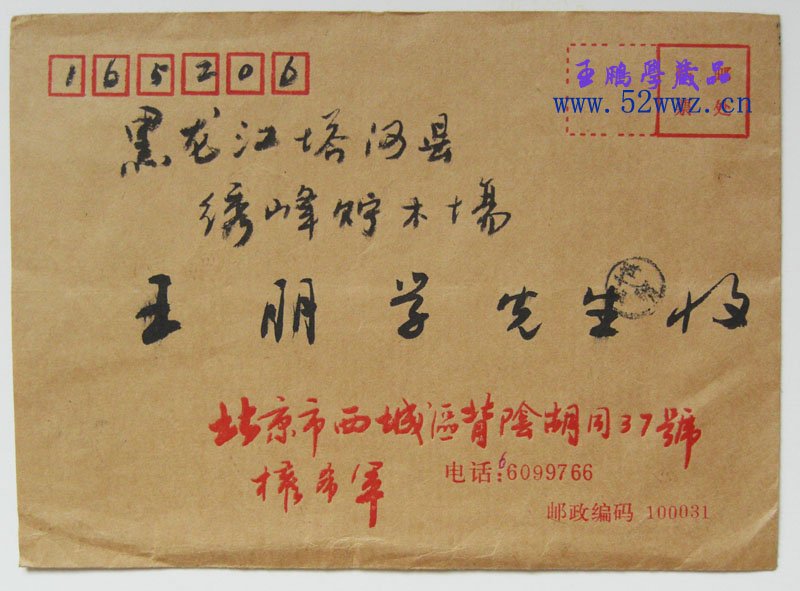 165206
王鹏學藏品
www.52wwz.cn
黑龙江塔河县
绣峰贮木場
王朋学先生收
北京市西城區背陰胡同37號
希军
电话:66099766
邮政编码 100031